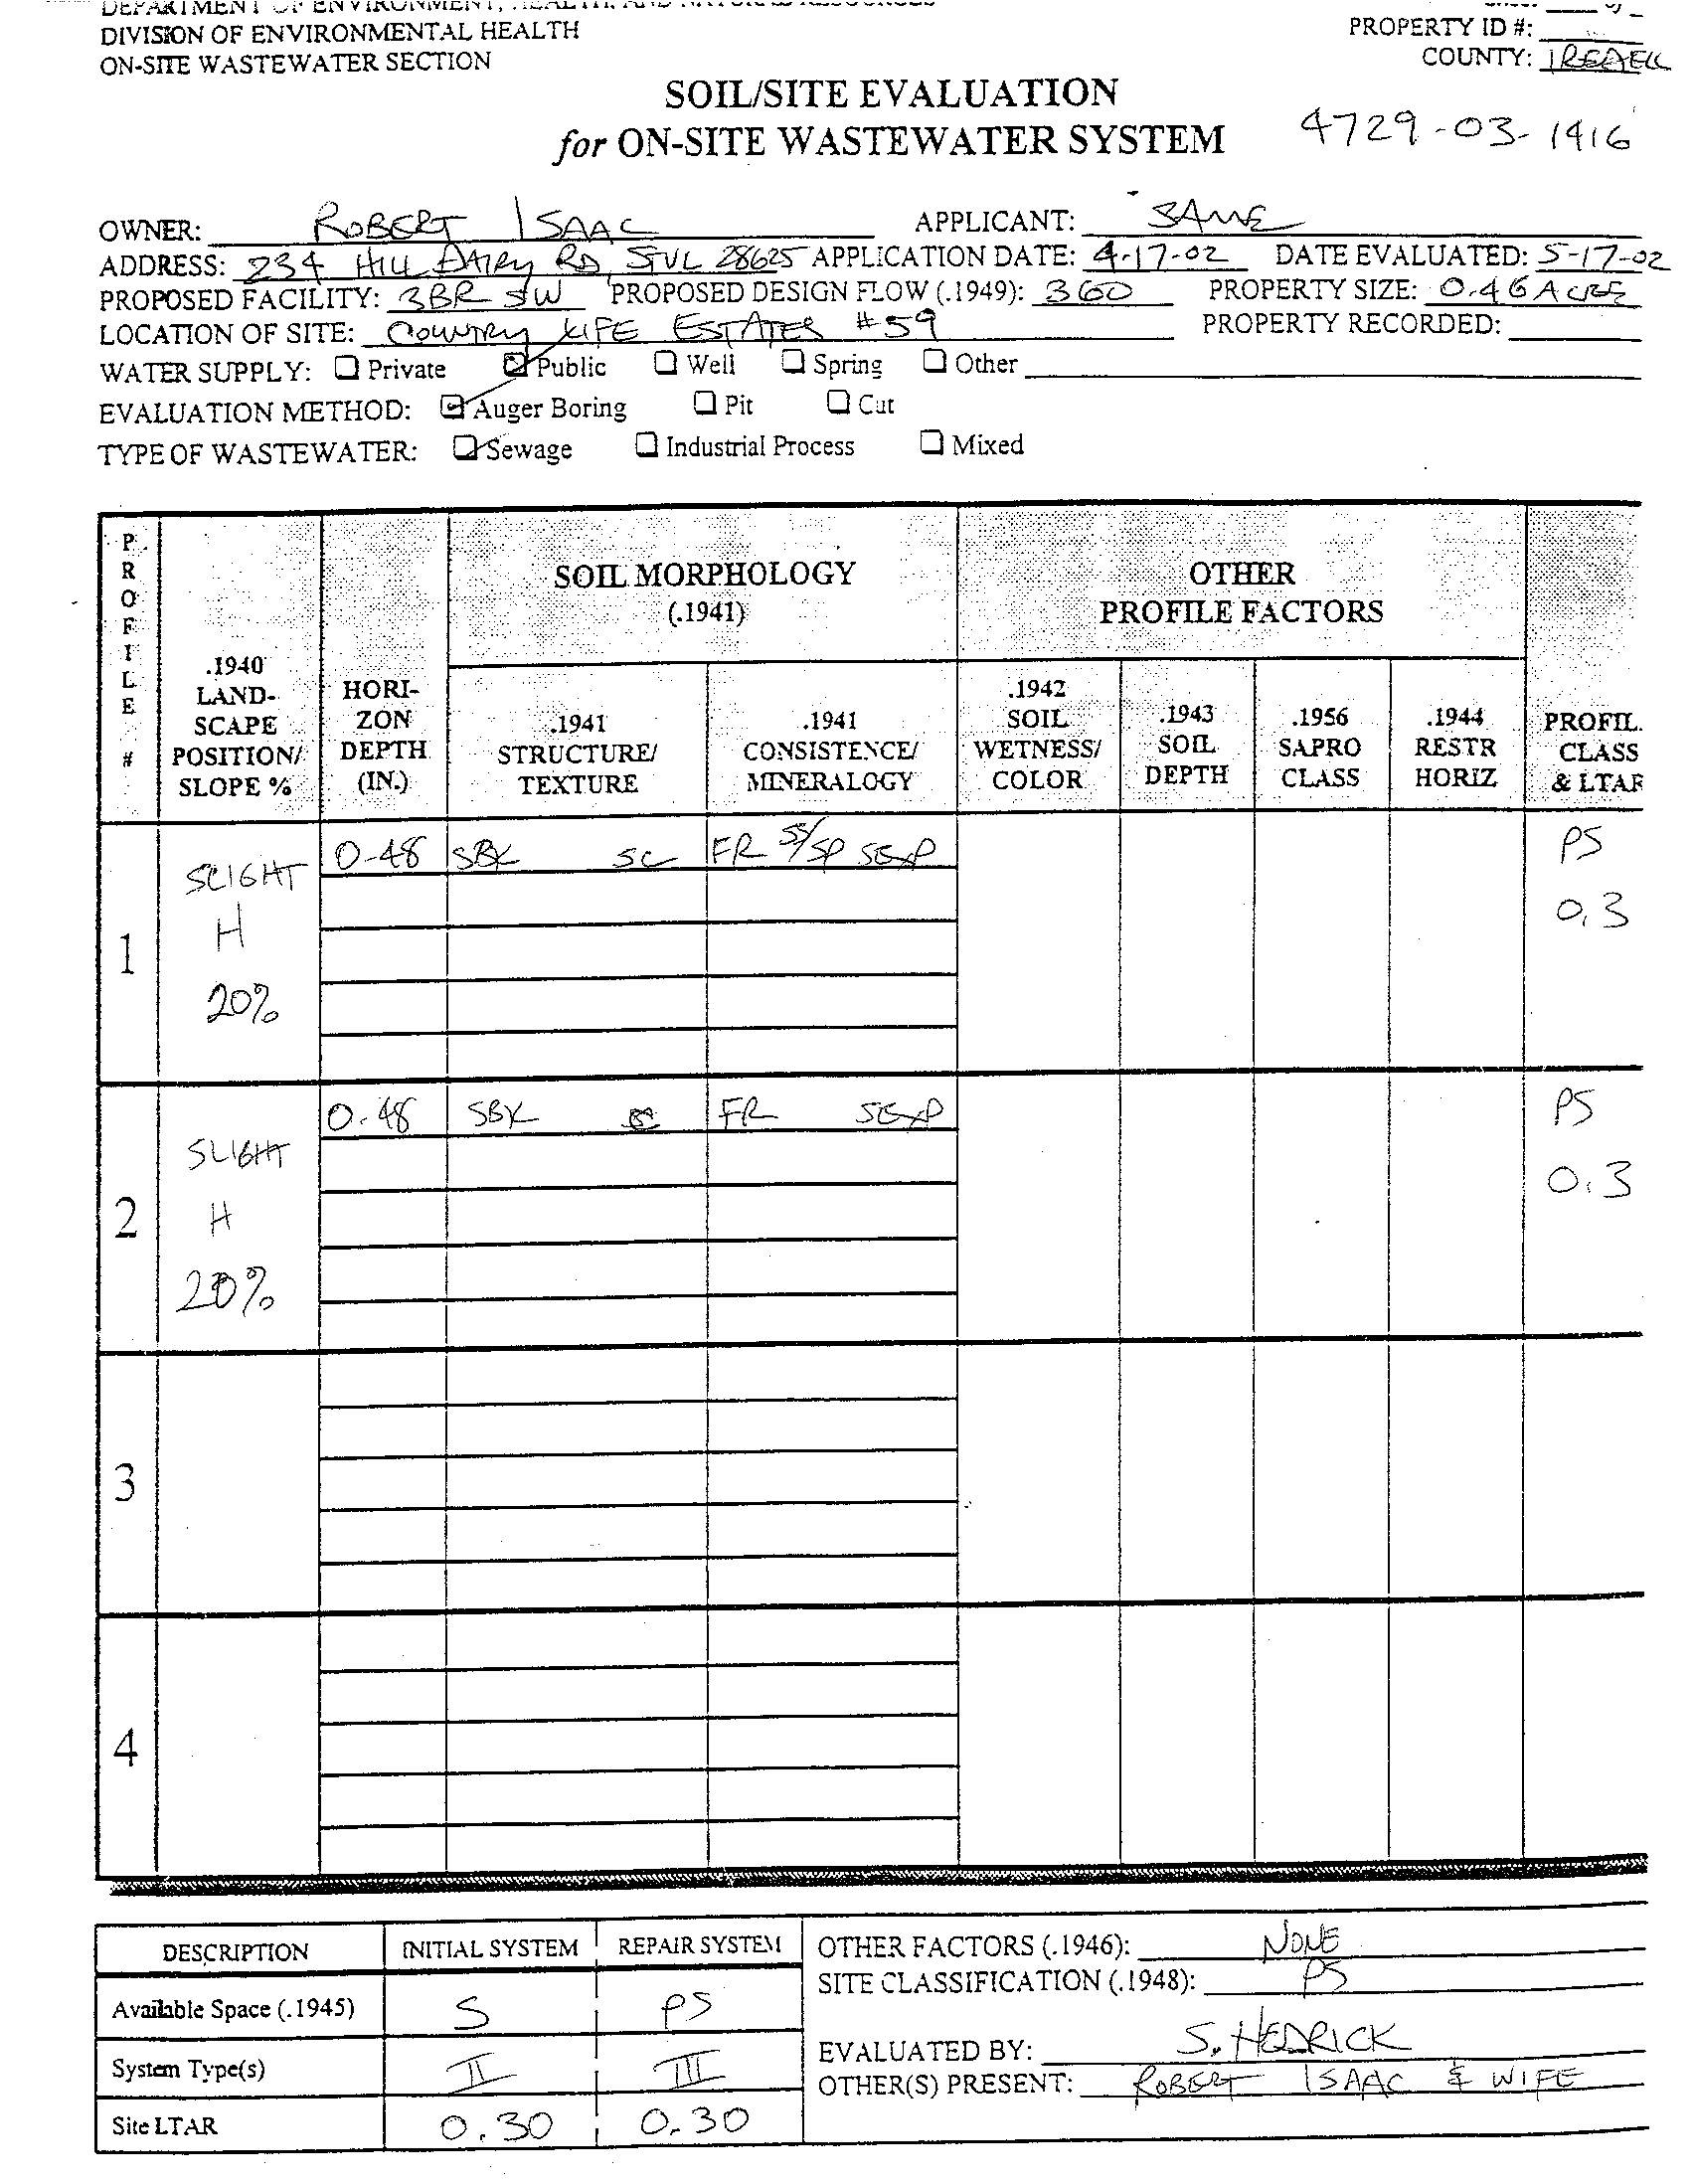 DEPARTMENT OF ENVIRONMENT, HEALTH, AND NATURAL RESOURCES
DIVISION OF ENVIRONMENTAL HEALTH
ON-SITE WASTEWATER SECTION
PROPERTY ID #:
COUNTY: IREDELL
SOIL/SITE EVALUATION
for ON-SITE WASTEWATER SYSTEM
4729-03-1416
OWNER: ROBERT ISAAC APPLICANT: SAME
ADDRESS: 234 HILL DAIRY RD, SVL 28625 APPLICATION DATE: 4-17-02 DATE EVALUATED: 5-17-02
PROPOSED FACILITY: 3BR SW PROPOSED DESIGN FLOW (.1949): 360 PROPERTY SIZE: 0.46 ACRE
LOCATION OF SITE: COUNTRY LIFE ESTATES #59 PROPERTY RECORDED:
WATER SUPPLY: Private Public Well Spring Other
EVALUATION METHOD: Auger Boring Pit Cut
TYPE OF WASTEWATER: Sewage Industrial Process Mixed
PROFILE #
.1940
LAND-
SCAPE
POSITION/
SLOPE %
HORI-
ZON
DEPTH
(IN.)
SOIL MORPHOLOGY
(.1941)
.1941
STRUCTURE/
TEXTURE
.1941
CONSISTENCE/
MINERALOGY
OTHER
PROFILE FACTORS
.1942
SOIL
WETNESS/
COLOR
.1943
SOIL
DEPTH
.1956
SAPRO
CLASS
.1944
RESTR
HORIZ
PROFIL.
CLASS
& LTAR
1
SLIGHT
H
20%
0-48 SBK SC FR SS/SP SEXP
PS
0.3
2
SLIGHT
H
20%
0-48 SBK FR SEXP
PS
0.3
3
4
DESCRIPTION INITIAL SYSTEM REPAIR SYSTEM
Available Space (.1945) S PS
System Type(s) II III
Site LTAR 0.30 0.30
OTHER FACTORS (.1946): NONE
SITE CLASSIFICATION (.1948): PS
EVALUATED BY: S. HEDRICK
OTHER(S) PRESENT: ROBERT ISAAC & WIFE